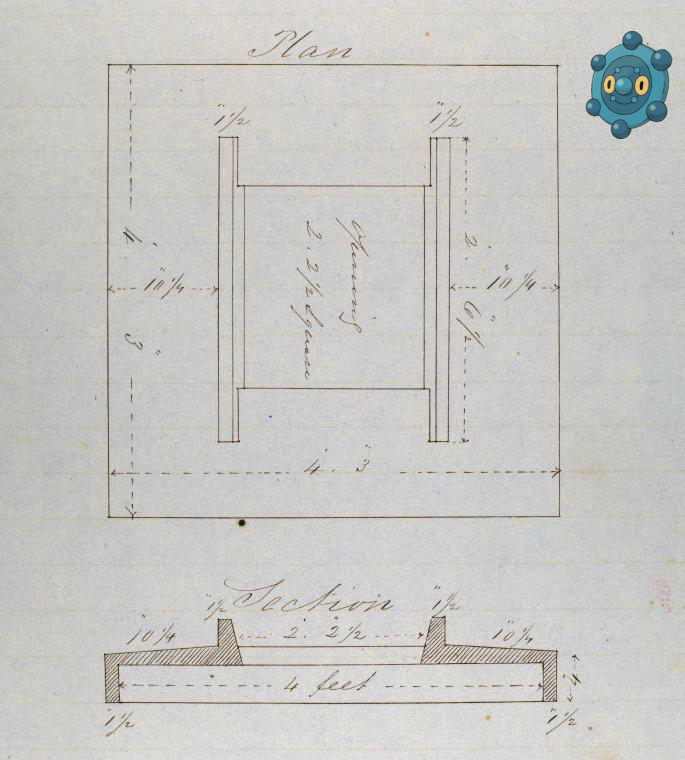 Plan
"1 1/2
"1 1/2
4'. 3"
"10 1/4
Opening
2. 2 1/2 Square
2'. 6 1/2"
"10 1/4
4'. 3"
Section
"1 1/2
"1 1/2
"10 1/4
2'. 2 1/2"
"10 1/4
4 feet
4"
"1 1/2
"1 1/2